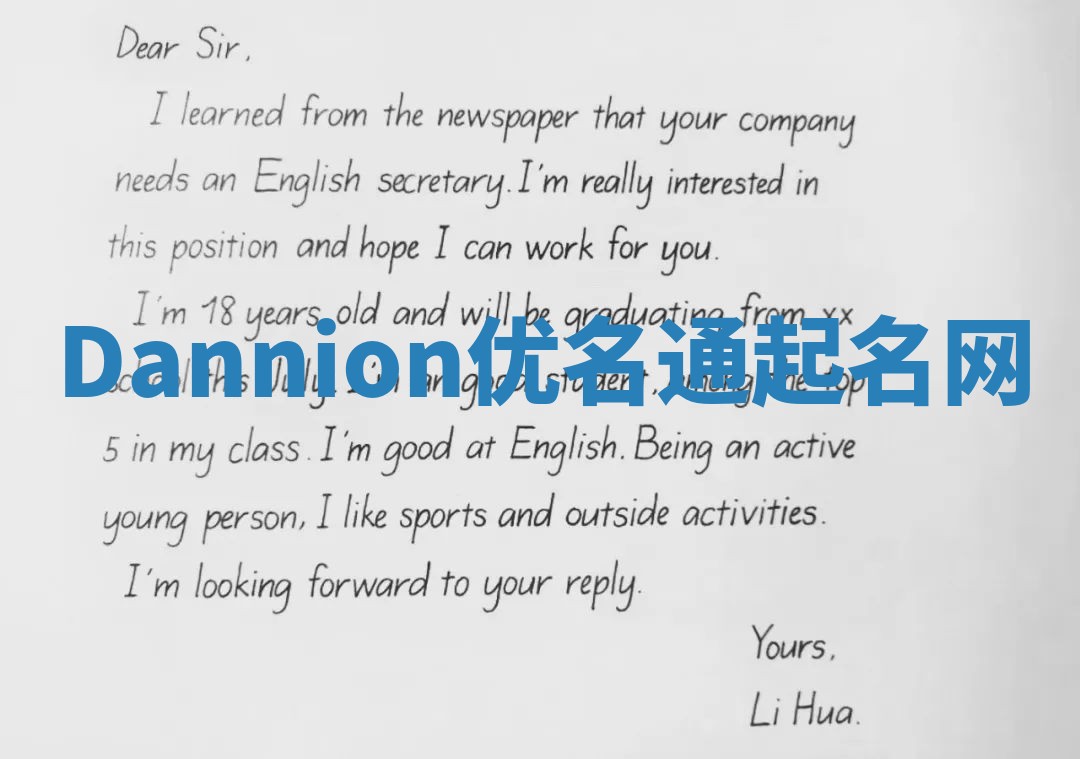 Dear Sir,
I learned from the newspaper that your company
needs an English secretary. I'm really interested in
this position and hope I can work for you.
I'm 18 years old and will be graduating from xx
Dannion优名通起名网
school this July. I'm an good student, among the top
5 in my class. I'm good at English. Being an active
young person, I like sports and outside activities.
I'm looking forward to your reply.
Yours,
Li Hua.